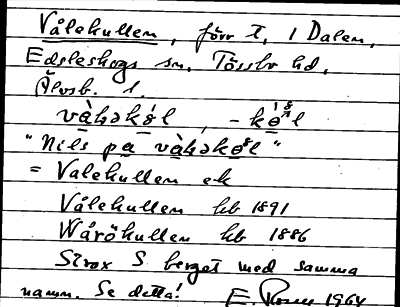 Vålekullen, förr t, i Dalen,
Edsleskogs sn, Tössbo hd,
Älvsb. l.
"Nils på
= Valekullen ek
Vålekullen hb 1891
Wåröhullen hb 1886
Strax S berget med samma
namn. Se detta! E. 1964